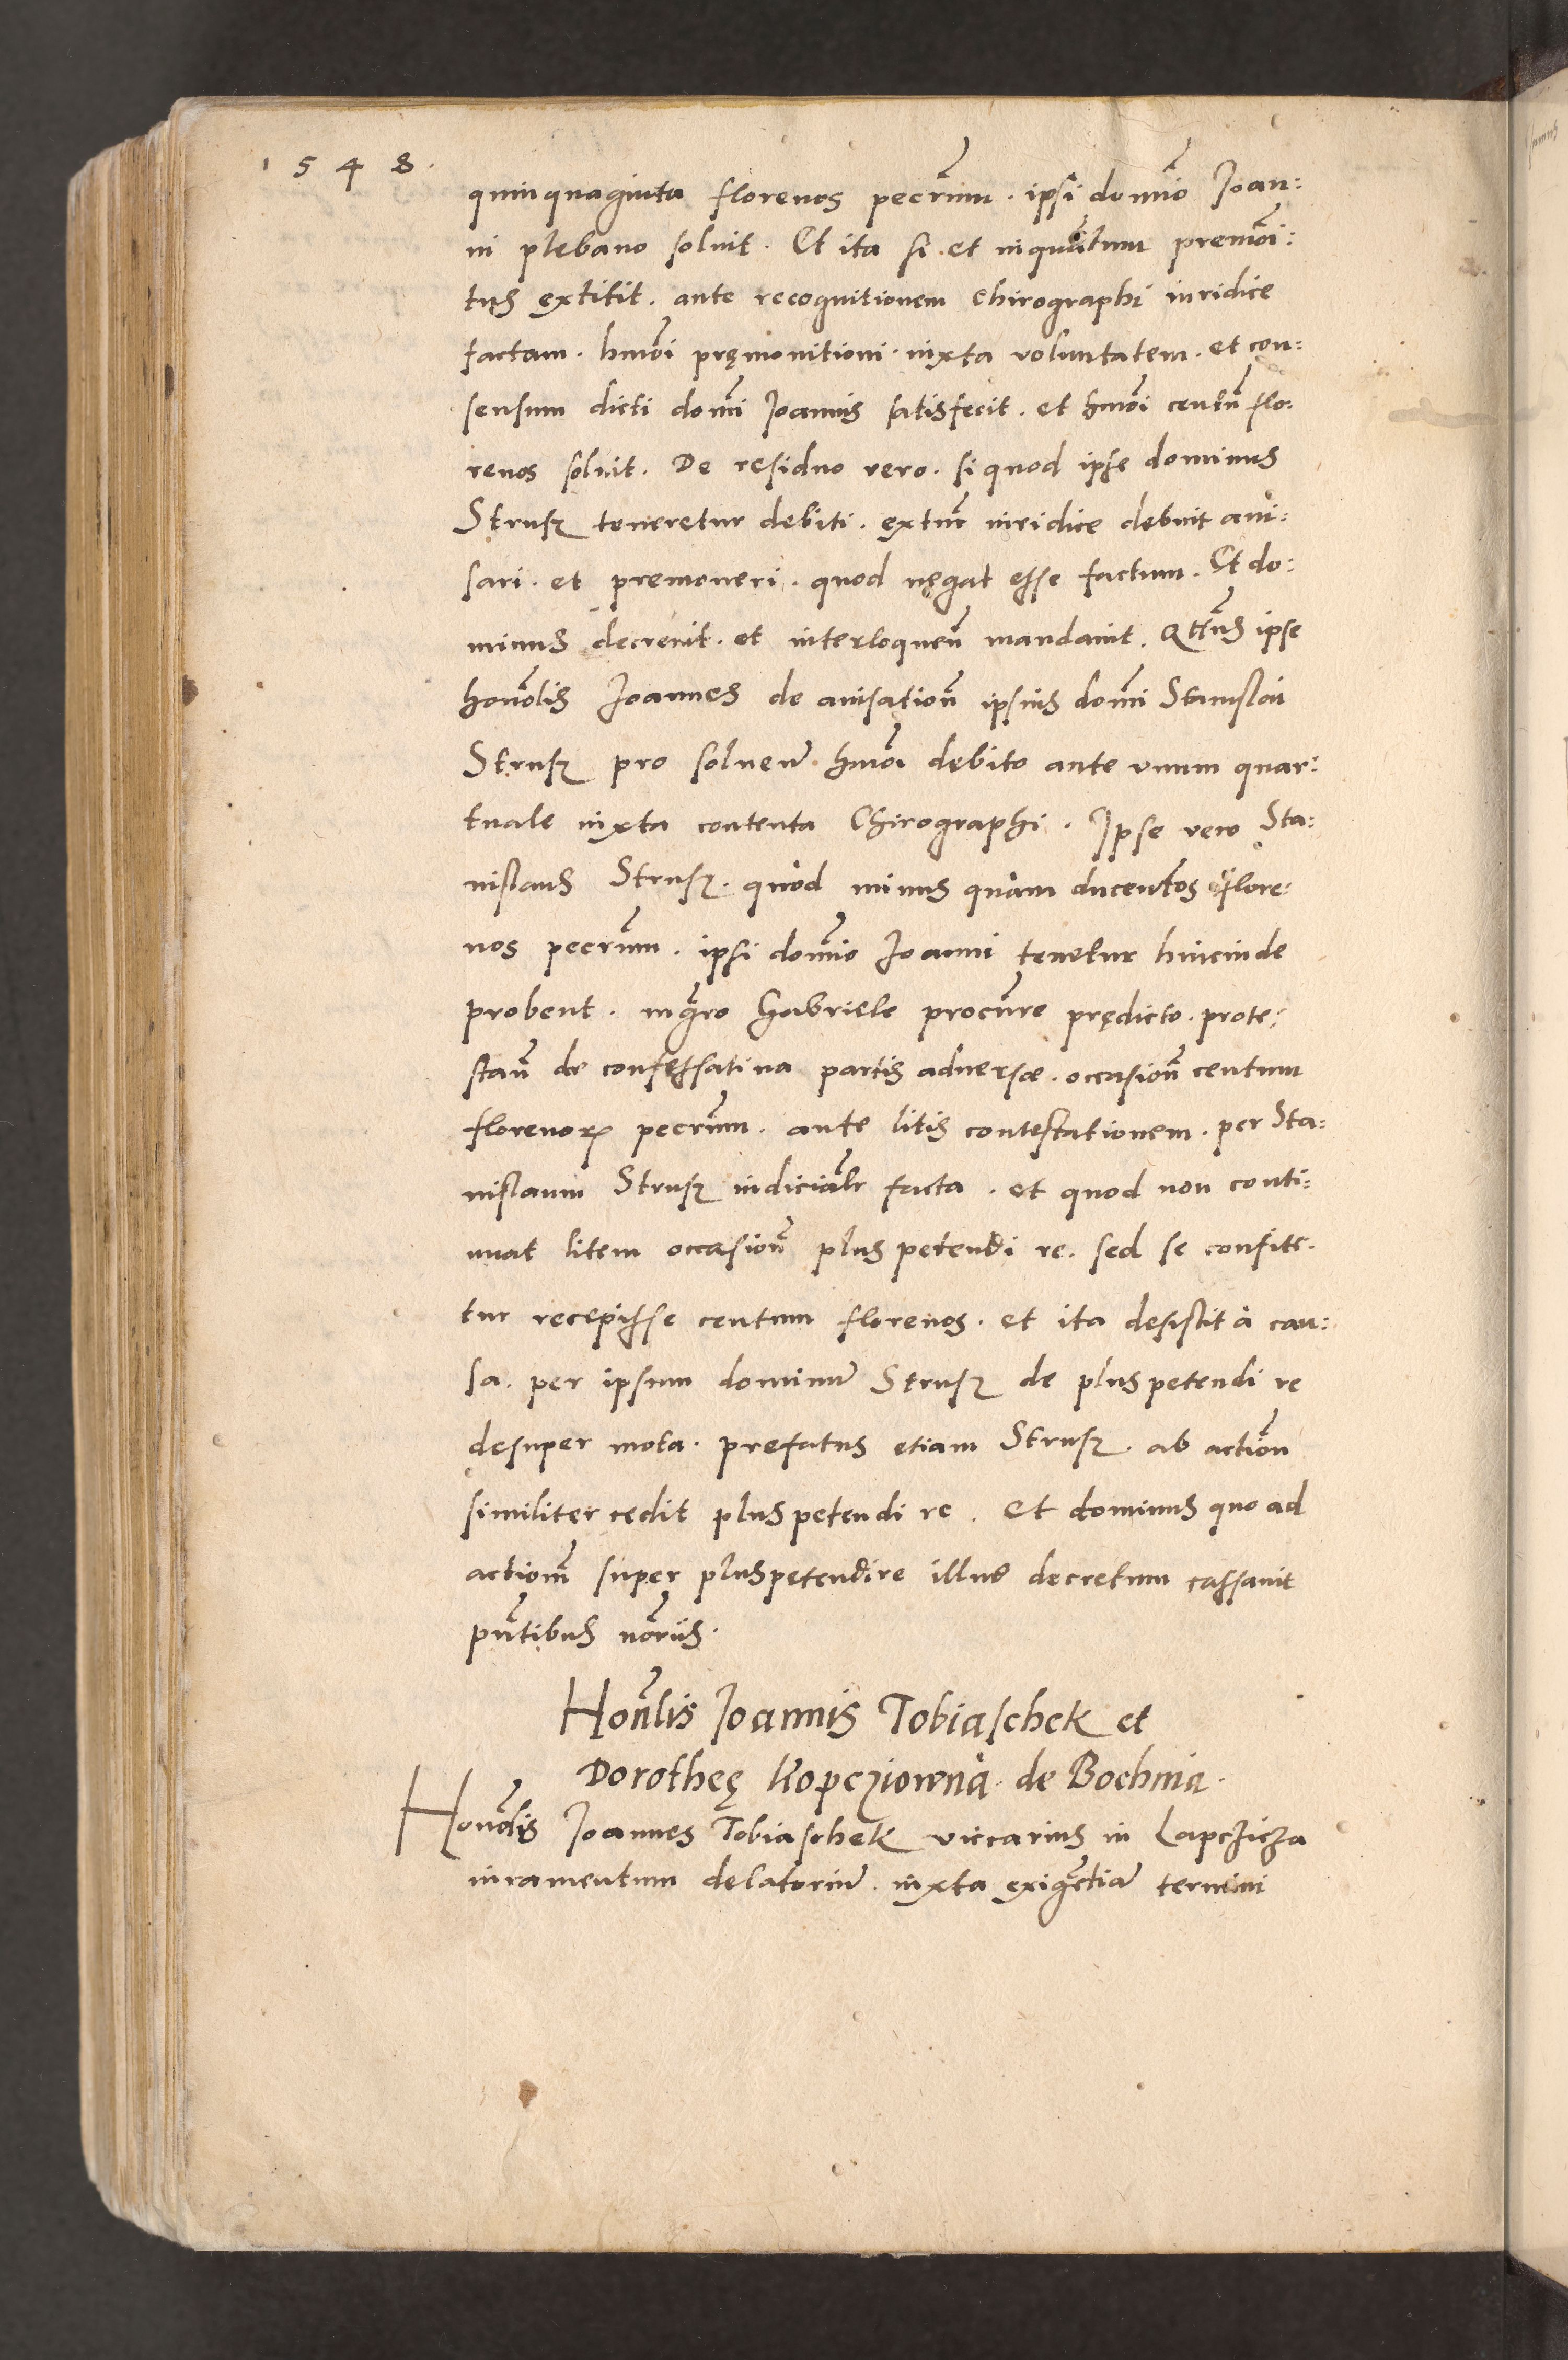 1 5 4 8.
quinquaginta florenos pecũrum. ipsi domĩo Joan:
ni plebano soluit. Et ita si et inquãtum premõi:
tus extitit. ante recognitionem chirographi iuridice
factam. hmõi pręmonitioni iuxta voluntatem. et con:
sensum dicti domĩ Joannis satisfecit. et hmõi centũ flo:
renos soluit. De residuo vero. si quod ipse dominus
Strusz teneretur debiti. extũc iuridice debuit aui:
sari. et premoneri. quod negat esse factum. Et do:
minus decreuit. et interloqueñ mandauit. Qtẽus ipse
honõlis Joannes de auisatioñ ipsius domĩ Stanislai
Strusz pro soluenđ hmõi debito ante vnum quar:
tuale iuxta contenta Chirographi. Ipse vero Sta:
nislaus Strusz. quòd minus quàm ducentos flore:
nos pecũrum. ipsi domĩo Joanni tenetur hincinde
probent. mg̃ro Gabriele procũre prędicto. prote:
stañ de confessatiua partis aduersæ. occasioñ centum
florenoꝝ pecũrum. ante litis contestationem. per Sta:
nislaum Strusz iudiciałr facta. et quod non conti:
nuat litem occasioñ plus petendi re. sed se confite:
tur recepisse centum florenos. et ita desistit à cau:
sa. per ipsum dominũ Strusz de plus petendi re
desuper mota. prefatus etiam Strusz. ab actioñ
similiter cedit plus petendi re. Et dominus quo ad
actioñm super pluspetendire illud decretum cassauit
pñtibus nõriis.
Honõlis Joannis Tobiaschek et
Dorotheę Kopcziowna de Bochnia.
Honõlis Joannes Tobiaschek viccarius in Lapczicza
iuramentum delatoriũ iuxta exigẽtiã termini